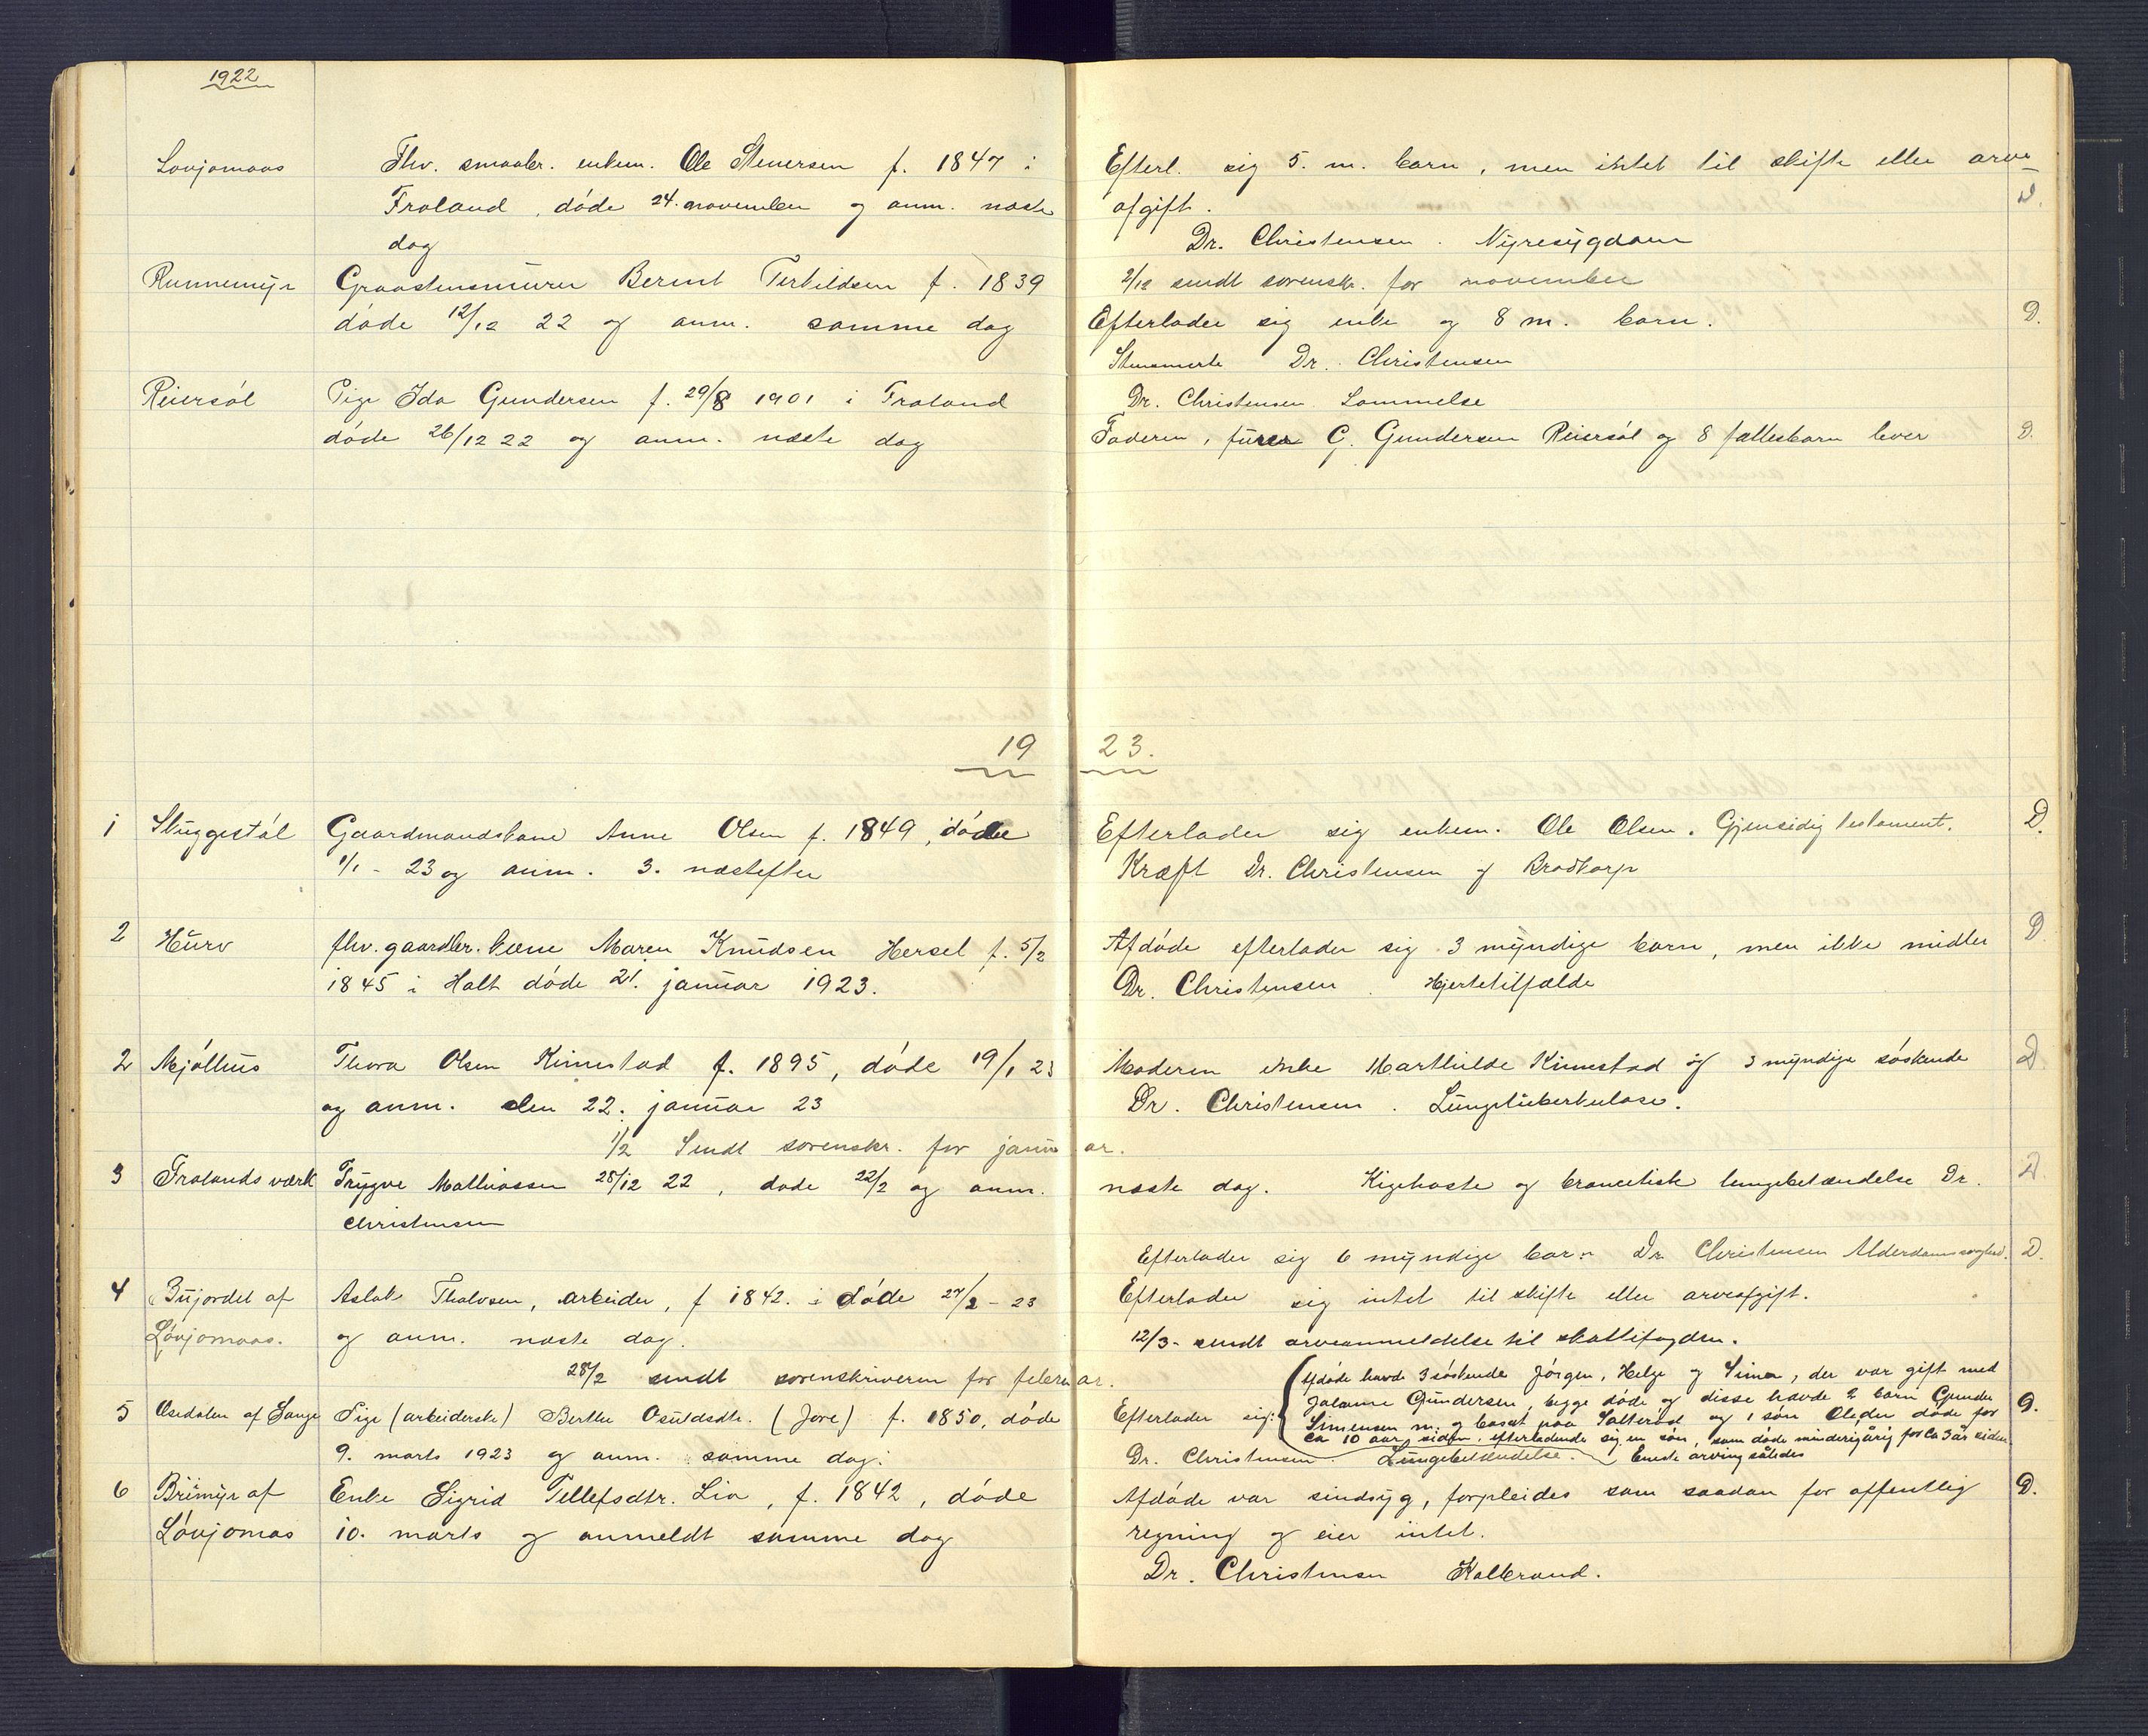 1922
Lovjomaas Fhv. smaabr. enkem. Ole Steuersen f. 1847 i Efterl. sig 5. m. barn, men intet til skifte eller arve-
Froland, døde 24. november og anm. næste afgift. D.
dag Dr. Christensen. Nyresygdom
Runnemyr Graastensmurer Bernt Terkildsen f. 1839 2/12 sendt sorenskr. for november
døde 12/12 22 og anm. samme dag Efterlader sig enke og 8 m. barn. D.
Dr. Christensen
Reiersøl Pige Ida Gundersen f. 29/8 1901 i Froland Dr. Christensen
døde 26/12 22 og anm. næste dag Faderen, G. Gundersen Reiersøl og 8 fællesbarn lever D.
19 23.
1 Stuggestøl Gaardmandskane Anne Olsen f. 1849, døde Efterlader sig enkem. Ole Olsen. Gjensidig testament. D.
1/1 - 23 og anm. 3. næstefter Kræft Dr. Christensen og Brodtkorp
2 Hurv fhv. gaardbr. kone Maren Knudsen Hersel f. 5/2 Afdøde efterlader sig 3 myndige barn, men ikke midler D
1845 i Holt døde 21. januar 1923. Dr. Christensen. Hjertetilfælde
2 Mjølhus Thora Olsen Kimestad f. 1895, døde 19/1 23 Moderen enke Marthilde Kimestad og 3 myndige søskende D
og anm. den 22. januar 23 Dr. Christensen. Lungetuberkulose.
1/2 Sendt sorenskr. for januar.
3 Frolands værk Trygve Mathiassen 28/12 22, døde 22/2 og anm. næste dag. Kighoste og broncetisk lungebetændelse Dr. D.
Christensen
Efterlader sig 6 myndige barn Dr. Christensen Alderdomssvaghed. D.
4 Bujordet af Aslak Thalvsen, arbeider, f 1842. i døde 27/2 - 23 Efterlader sig intet til skifte eller arveafgift.
Løvjomaas. og anm. næste dag. 12/3 - sendt arveanmeldelse til skattefogden.
28/2 sendt sorenskriveren for februar.
Afdøde havde 3 søskende Jørgen, Helge og Simen, der var gift med
5 Osedalen af Songe Pige (arbeiderske) Berthe Osuldsdtr. (Jore) f. 1850, døde Efterlader sig: Johanne Gundersen, begge døde og disse havde 2 barn Gunder D.
Simensen m. og bosat paa Salterød og 1 søn Ole, der døde for
ca 10 aar siden, efterladende sig en søn, som døde mindreårig for ca 3 år siden
9. marts 1923 og anm. samme dag. Dr. Christensen. Lungebetændelse. Eneste arving således
6 Brimyr af Enke Sigrid Tellefsdtr. Lia, f. 1842, døde Afdøde var sindsyg, forpleides som saadan for offentlig D.
Løvjomas 10. marts og anmeldt samme dag regning og eier intet.
Dr. Christensen Koldbrand.